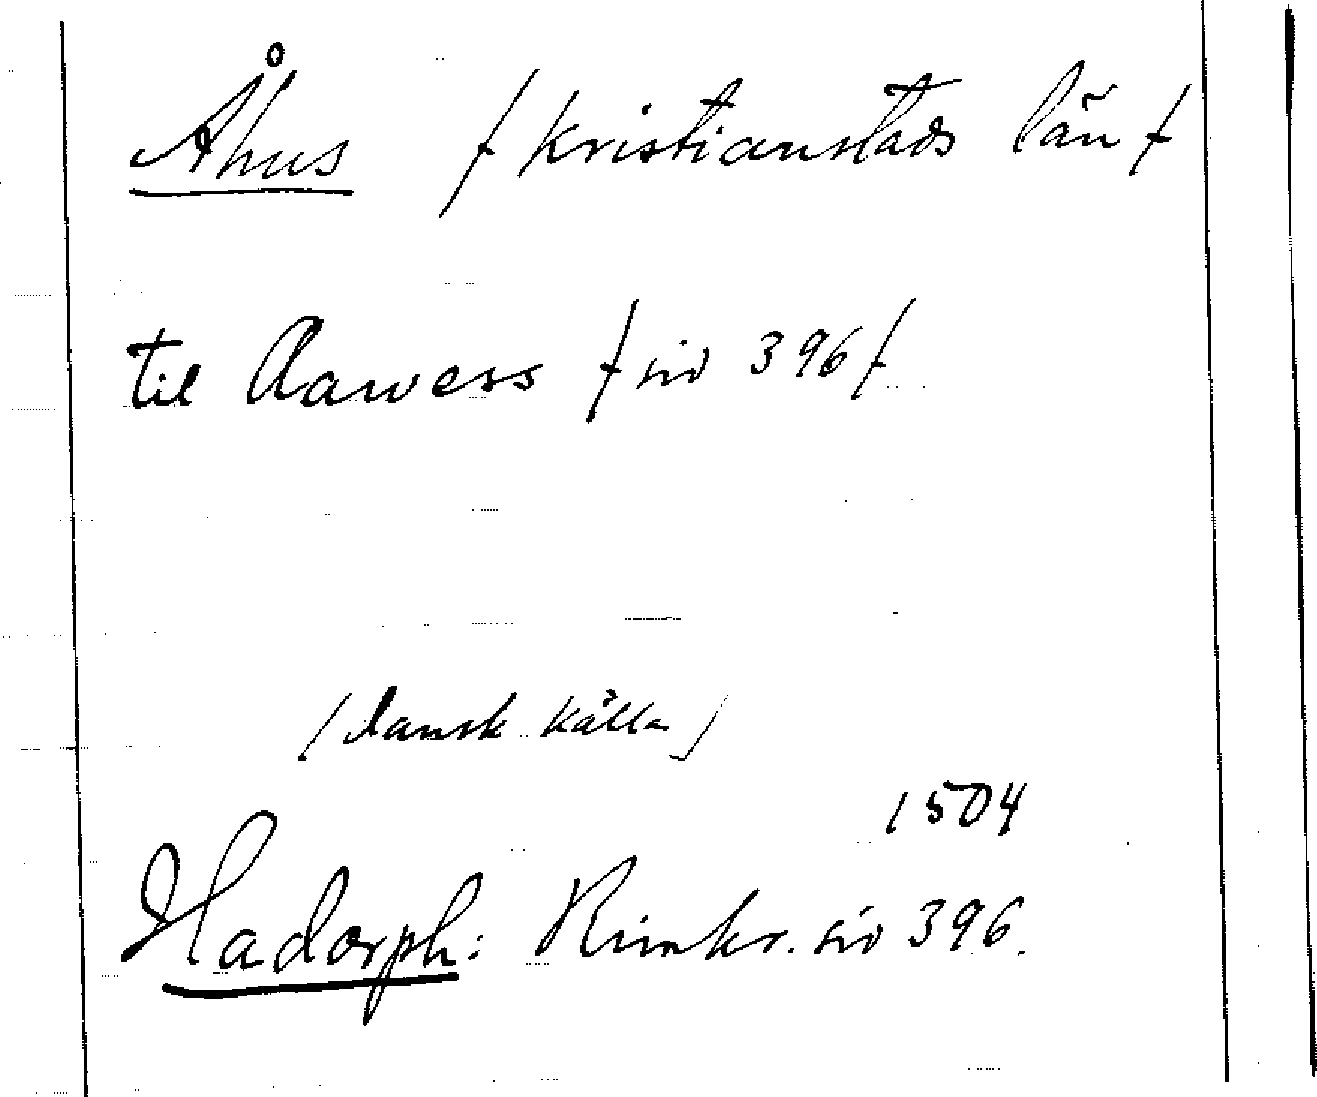 Åhus /Kristianstads län/
til Aawess /sid 396/
(dansk källa)
1504
Hadorph: Rimkr. sid 396.